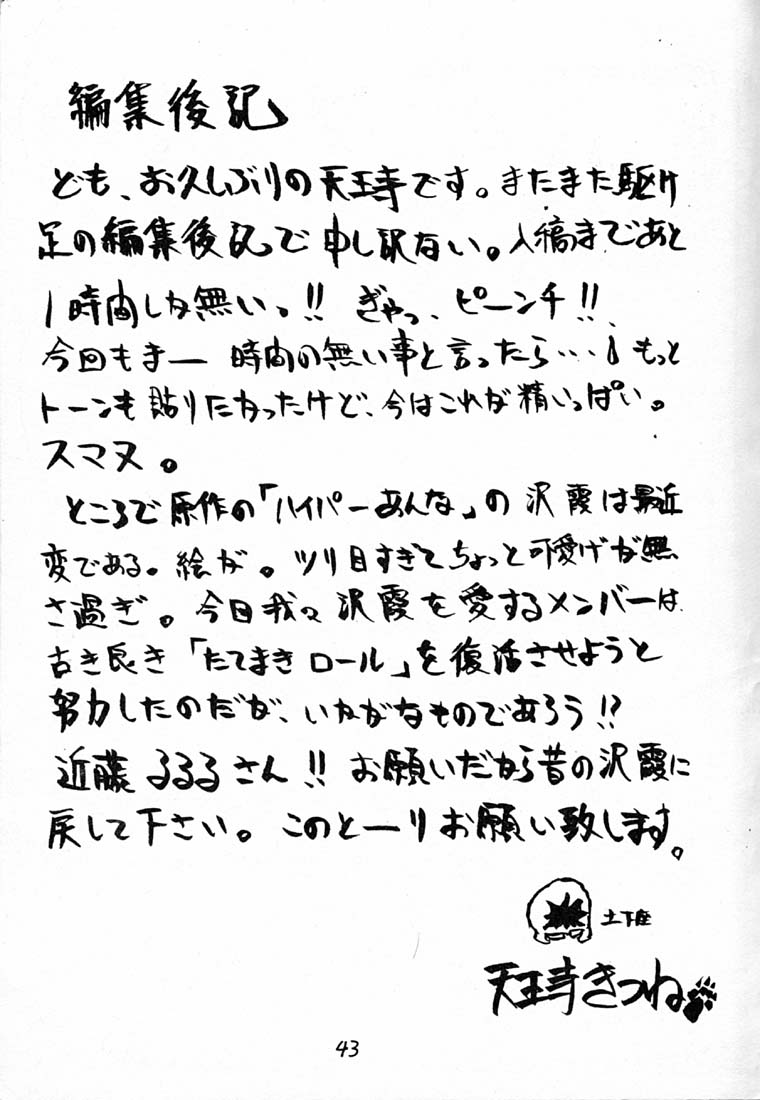 編集後記
ども、お久しぶりの天王寺です。またまた駆け
足の編集後記で申し訳ない。入稿まであと
1時間しか無いっ!! ぎゃっ、ピーンチ!!
今回もまー 時間の無い事と言ったら…! もっと
トーンも貼りたかったけど、今はこれが精いっぱい。
スマヌ。
ところで原作の「ハイパーあんな」の沢霞は最近
変である。絵が。ツリ目すぎてちょっと可愛げが無
さ過ぎ。今回我々沢霞を愛するメンバーは
古き良き「たてまきロール」を復活させようと
努力したのだが、いかがなものであろう!?
近藤るるるさん!! お願いだから昔の沢霞に
戻して下さい。このとーりお願い致します。
土下座
天王寺きつね
43